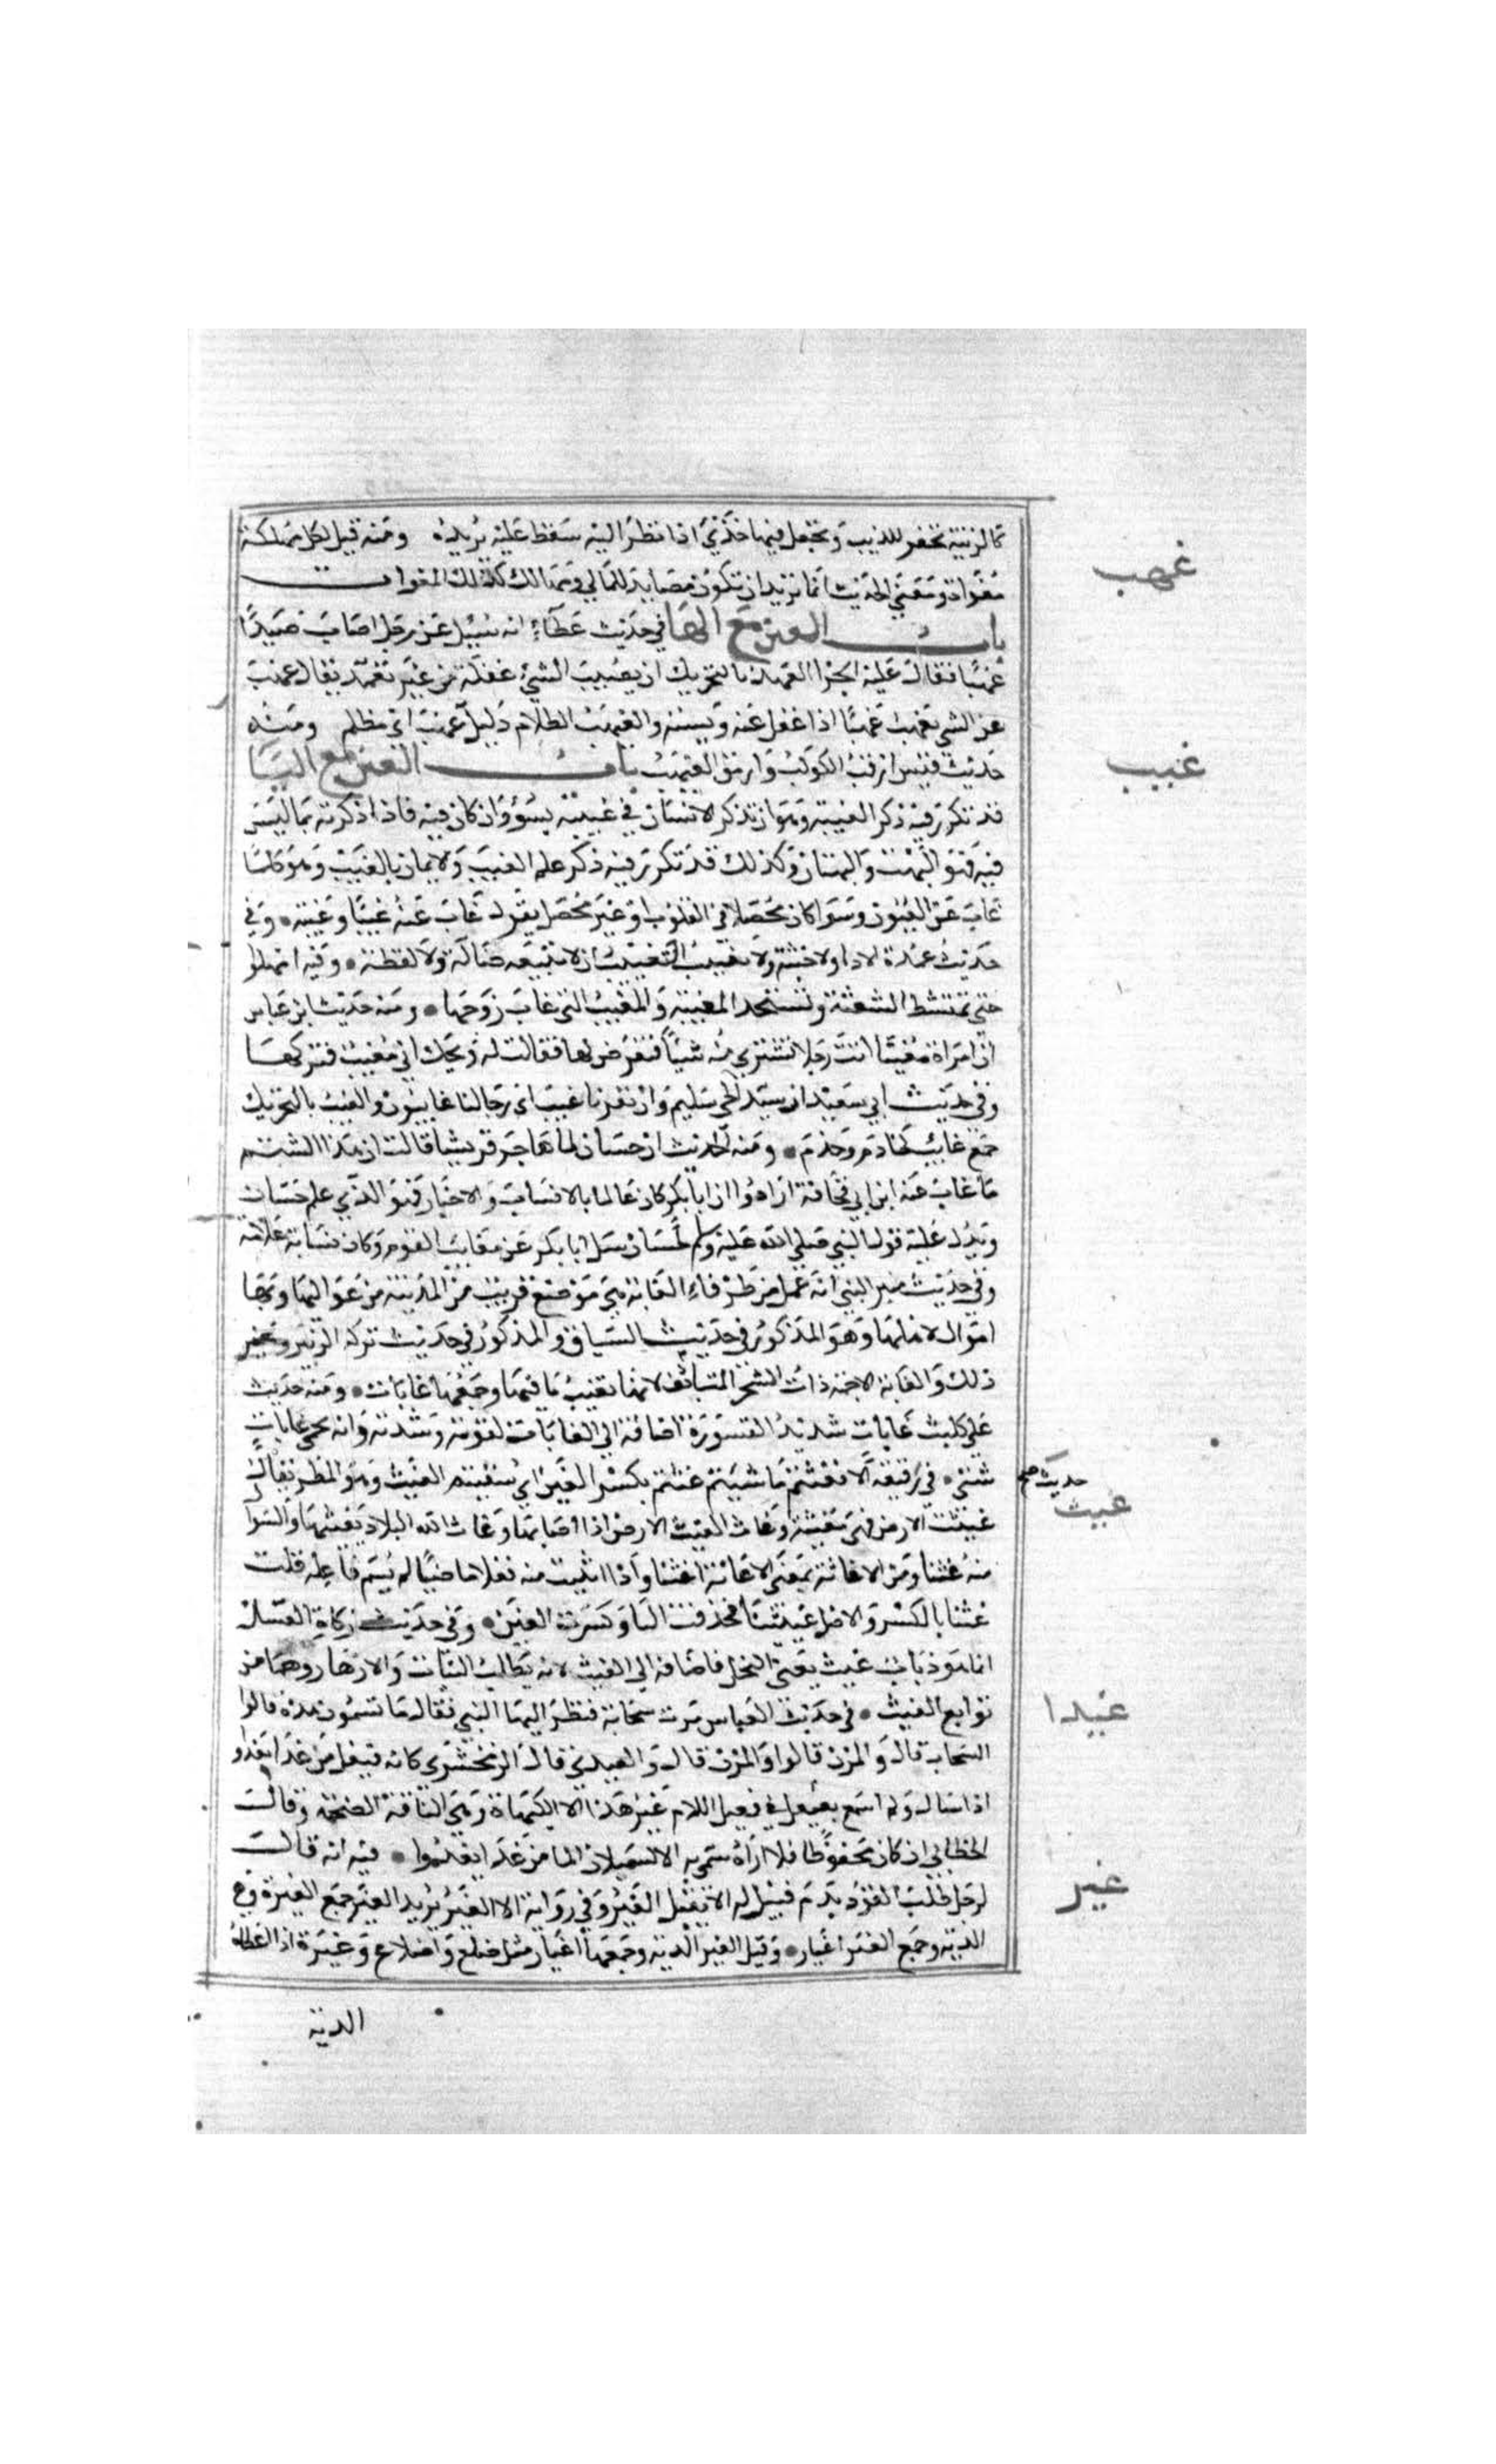 كالزبية تحفر للذيب وتجعل فيها جَدْيٌ اذا نظر اليه سقط عليه يريده ومنه قيل لكل مهلكة
مغواة ومعنى الحديث انما تريد ان تكون مصايد للمال ومهالك كتلك المغويات
غهب
باب الغين مع الها في حديث عطاء انه سُئِل عن رجل اصاب صيدًا
غهبًا فقال عليه الجزا الغهب بالتحريك ان يصيب الشيء غفلة من غير تعمد يقال غهب
عن الشي يغهب غهبًا اذا غفل عنه ونسيه والغيهب الظلام وليل غيهب اي مظلم ومنه
غيب
حديث قس ارقب الكوكب وارمق الغيهب باب الغين مع اليا
قد تكرر فيه ذكر الغيبة وهو ان تذكر الانسان في غيبته بسوء وان كان فيه فاذا ذكرته بما ليس
فيه فهو البهت والبهتان وكذلك قد تكرر فيه ذكر علم الغيب والايمان بالغيب وهو كلما
غاب عن العيون وسوا كان محصلا في القلوب او غير محصل يقول غاب عنه غيبًا وغيبة وفي
حديث عهدة الادا ولا خبثة ولا تغييب التغييب ان لا تبيعه ضالة ولا لقطة وفيه امهلوا
حتى تمتشط الشعثة وتستحد المغيبة والمغيب التي غاب زوجها ومنه حديث ابن عباس
ان امراة مغيبا اتت رجلا تشتري منه شيأ فتعرض لها فقالت له ويحك اني مغيب فتركها
وفي حديث ابي سعيد ان سيد الحي سليم وان نفرنا غيب اي رجالنا غايبون والغيب بالتحريك
جمع غايب كخادم وخدم ومنه الحديث ان حسان لما هاجر قريشا قالت ان هذا الشتم
ما غاب عنه ابن ابي قحافة ارادوا ان ابا بكر كان عالما بالانساب والاخبار فهو الذي علم حسان
ويدل عليه قول النبي صلى الله عليه وسلم لحسان سل ابا بكر عن معايب القوم وكان نسابة علامة
وفي حديث منبر النبي انه عمل من طرفاء الغابة هي موضع قريب من المدينة من عواليها وبها
اموال لاهلها وهو المذكور في حديث السباق والمذكور في حديث تركة الزبير وغير
ذلك والغابة الاجمة ذات الشجر المتكاثف لانها تغيب ما فيها وجمعها غابات ومنه حديث
علي كليث غابات شديد القسورة اضافه الى الغابات لقوته وشدته وانه يحمي غابات
حديث صح
غيث
شتى في رقيقة الا فغثتم ما شيتم غثتم بكسر الغين اي سقيتم الغيث وهو المطر يقال
غيثت الارض فهي مغيثة وغاث الغيث الارض اذا اصابها وغاث الله البلاد يغيثها والسوا
منه غثنا ومن الاغاثة بمعنى الاعانة اغثنا واذا بنيت منه فعلا ماضيًا لم يسم فاعله قلت
غثنا بالكسر والاصل غيثنا فحذفت اليا وكسرت الغين وفي حديث زكاة العسل
انما هو ذباب غيث يعني النحل فاضافه الى الغيث لانه يطلب النبات والازهار وهما من
غيدا
توابع الغيث في حديث العباس مرت سحابة فنظر اليها النبي فقال ما تسمون هذه قالوا
السحاب قال والمزن قالوا والمزن قال والغيدى قال الزمخشري كانه فيعل من غدا يغدو
اذا سال ولم اسمع بفيعل في معتل اللام غير هذا الا الكيهاة وهي الناقة الضخمة وقال
غير
الخطابي ان كان محفوظا فلا اراه سمي به الا لسيلان الما من غدا يغدوا فيه انه قال
لرجل طلب القود بدم قتيل له الا تقبل الغير وفي رواية الا الغير تريد الغير جمع الغيرة وهي
الدية وجمع الغير اغيار وقيل الغير الدية وجمعها اغيار مثل ضلع واضلاع وغيره اذا اعطاه
الدية